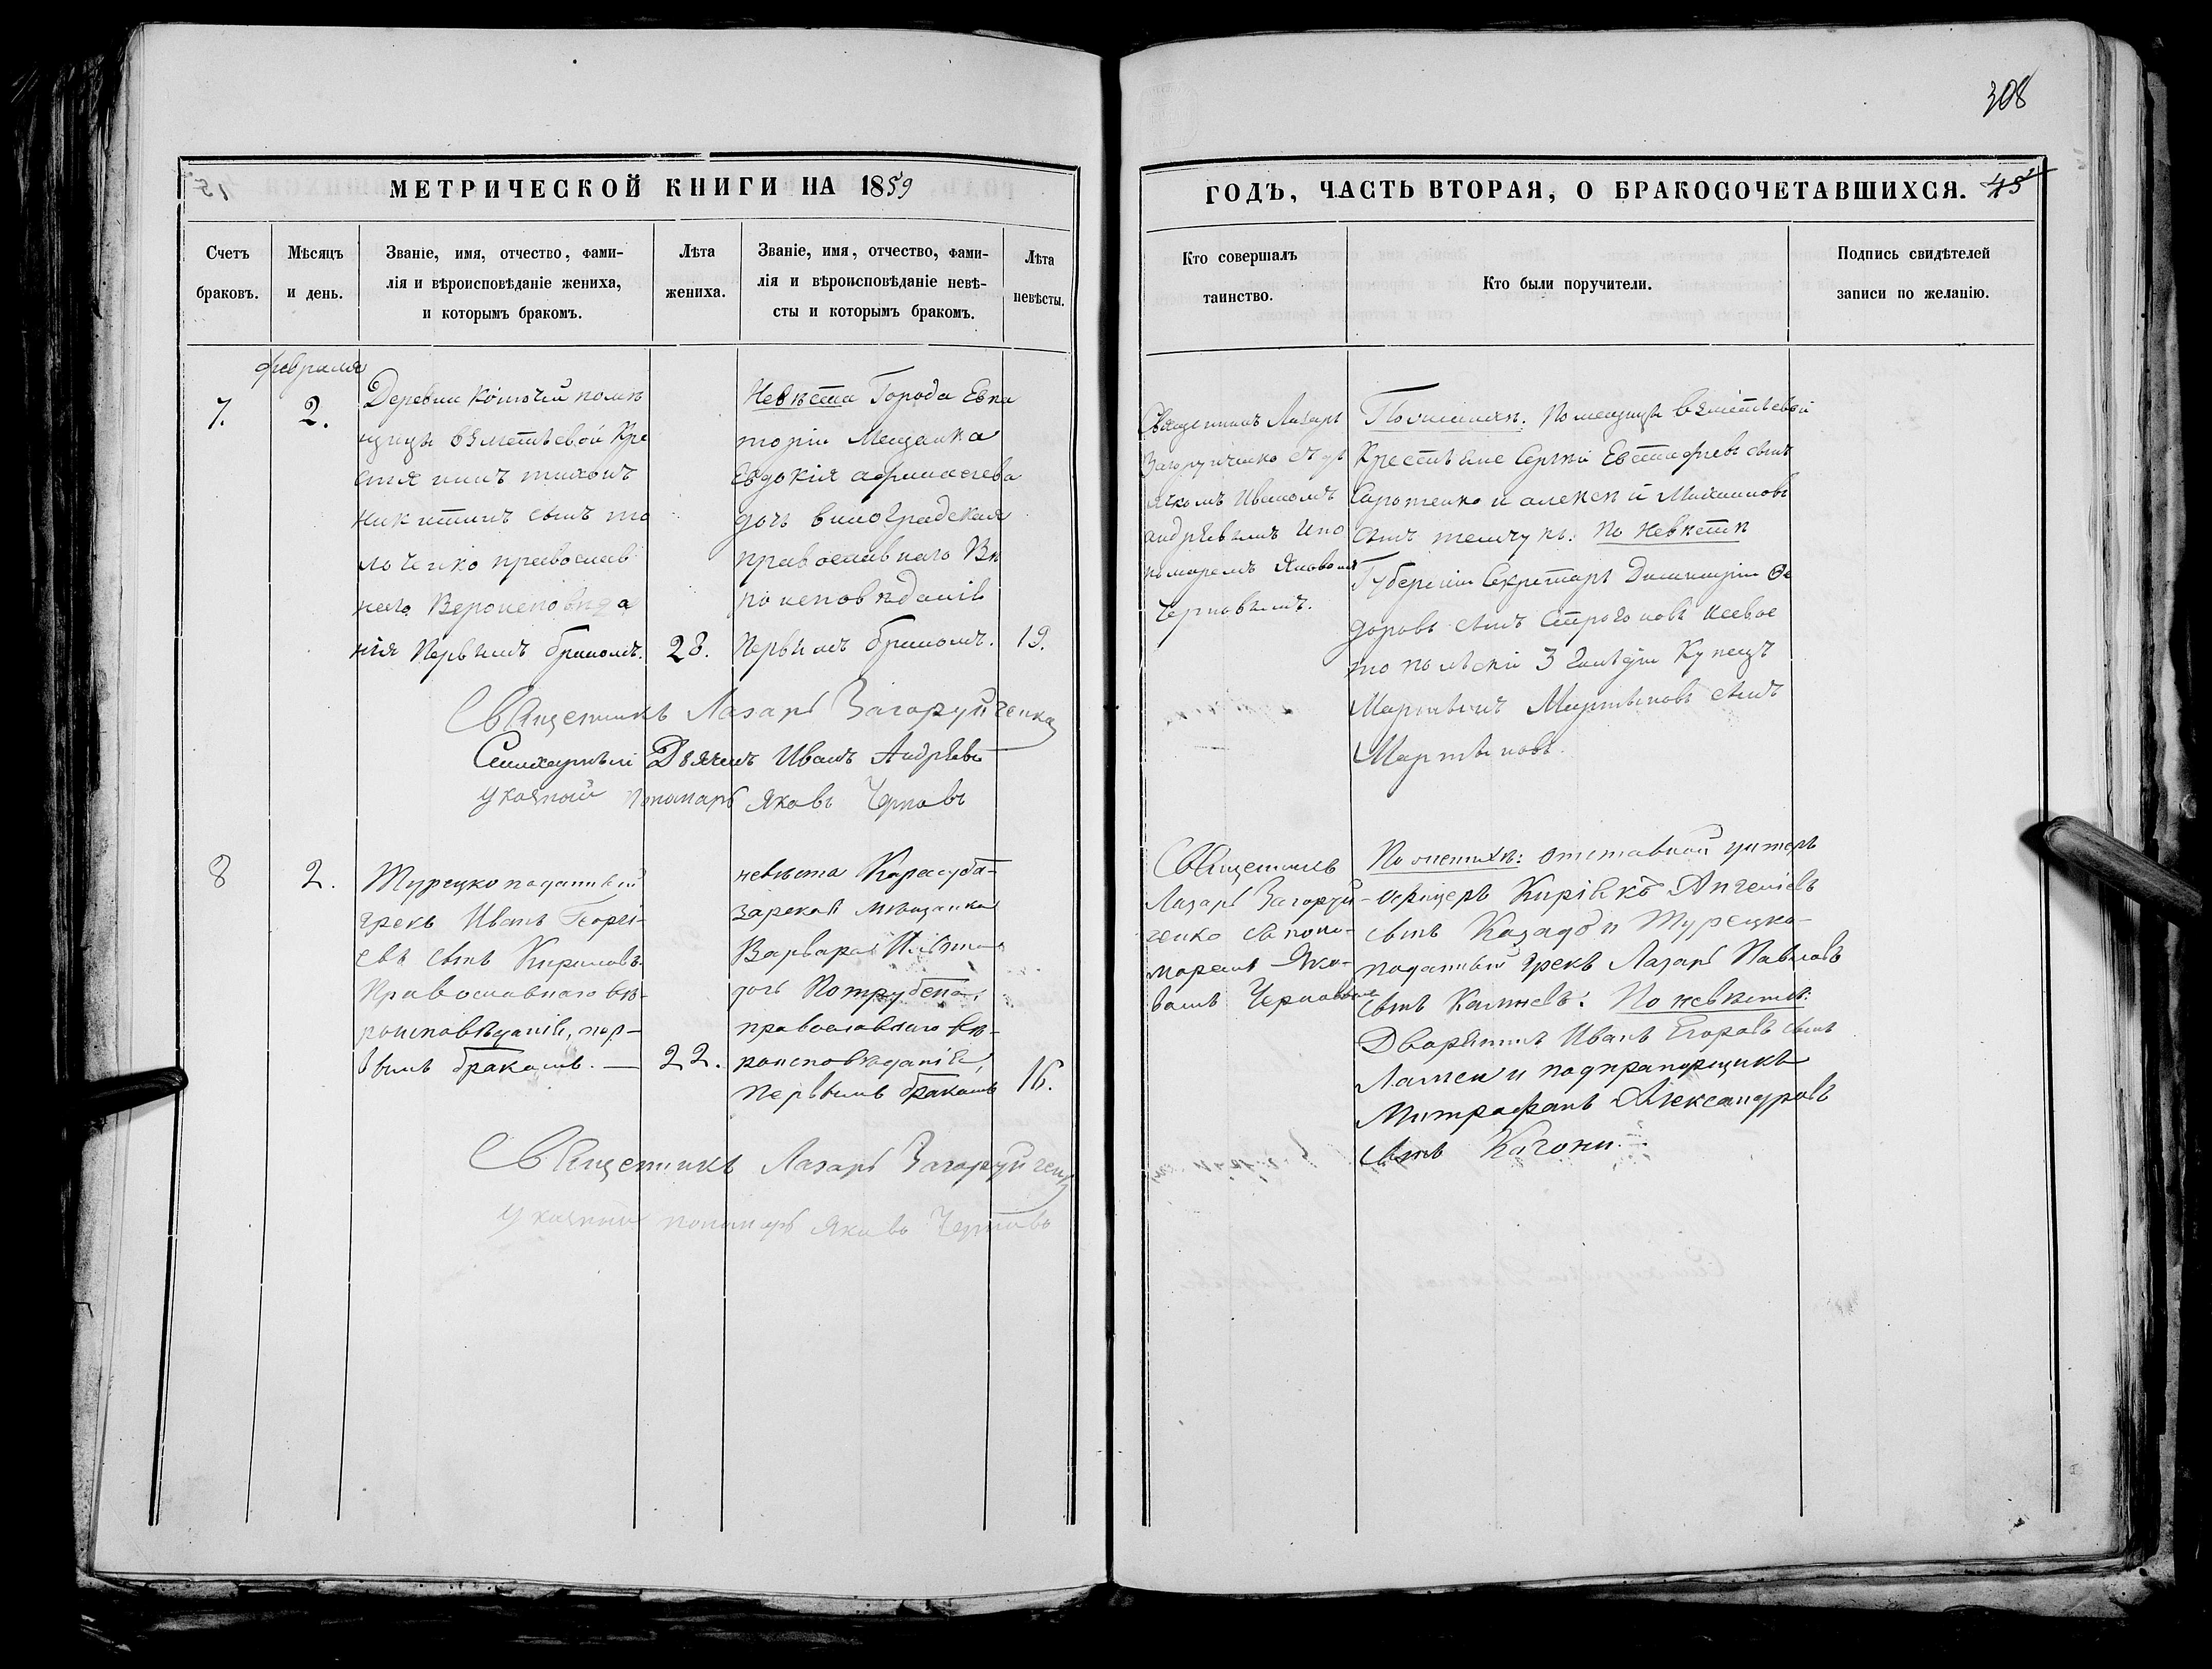 308
МЕТРИЧЕСКОЙ КНИГИ НА 1859
ГОДЪ, ЧАСТЬ ВТОРАЯ, О БРАКОСОЧЕТАВШИХСЯ. 45
Счетъ
браковъ.
Мѣсяцъ
и день.
Званіе, имя, отчество, фами-
лія и вѣроисповѣданіе жениха,
и которымъ бракомъ.
Лѣта
жениха.
Званіе, имя, отчество, фами-
лія и вѣроисповѣданіе невѣ-
сты и которымъ бракомъ.
Лѣта
невѣсты.
Кто совершалъ
таинство.
Кто были поручители.
Подпись свидѣтелей
записи по желанію.
февраля
7.
2.
Деревни помѣ
щицы Кре
стя нинъ тихонъ
никитинъ сынъ
православ
наго Вероисповѣда
нія Первымъ бракомъ.
28.
Невѣста Города Евпа
торіи Мещанка
Евдокія афанасіева
дочь виноградская
православнаго Вѣ
ро исповѣданія
Первымъ бракомъ.
19.
Священникъ Лазарь
Загоруйченко съ дь
ячкомъ Иваномъ
андріевымъ и по
номаремъ Яковомъ
Черновымъ.
Помещицы
Крестьяне Сергій Евстафіевъ сынъ
и алексѣй
сынъ По Невѣстѣ
Губернскій Секретарь Димитрій Ѳе
доровъ сынъ Строгоновъ и Севас
тополскій 3 Гильдіи Купецъ
Мартынъ Мартыновъ сынъ
Мартыновъ.
Священникъ Лазарь Загоруйченко
Дьячекъ Иванъ Андріевъ
указный пономарь Яковъ Черновъ
8
2.
Турецкоподанный
грекъ Иванъ Георгі-
евъ сынъ Кириловъ
Православнаго вѣ-
роисповѣданія, пер-
вымъ бракомъ. —
22.
невѣста Карасуба-
зарская мѣщанка
Варвара
дочь
православнаго вѣ-
роисповѣданія,
первымъ бракомъ
16.
Священникъ
Лазарь Загоруй-
ченко съ поно-
маремъ Яко-
вомъ Черновымъ
По женихѣ: отставной унтеръ
офицеръ Киріакъ Ангеліевъ
сынъ и Турецко-
поданный грекъ Лазарь Павловъ
сынъ По невѣстѣ:
Дворянинъ Иванъ Егоровъ сынъ
и подпрапорщикъ
Митрофанъ Александровъ
сынъ Качони.
Священникъ Лазарь Загоруйченко
указный пономарь Яковъ Черновъ